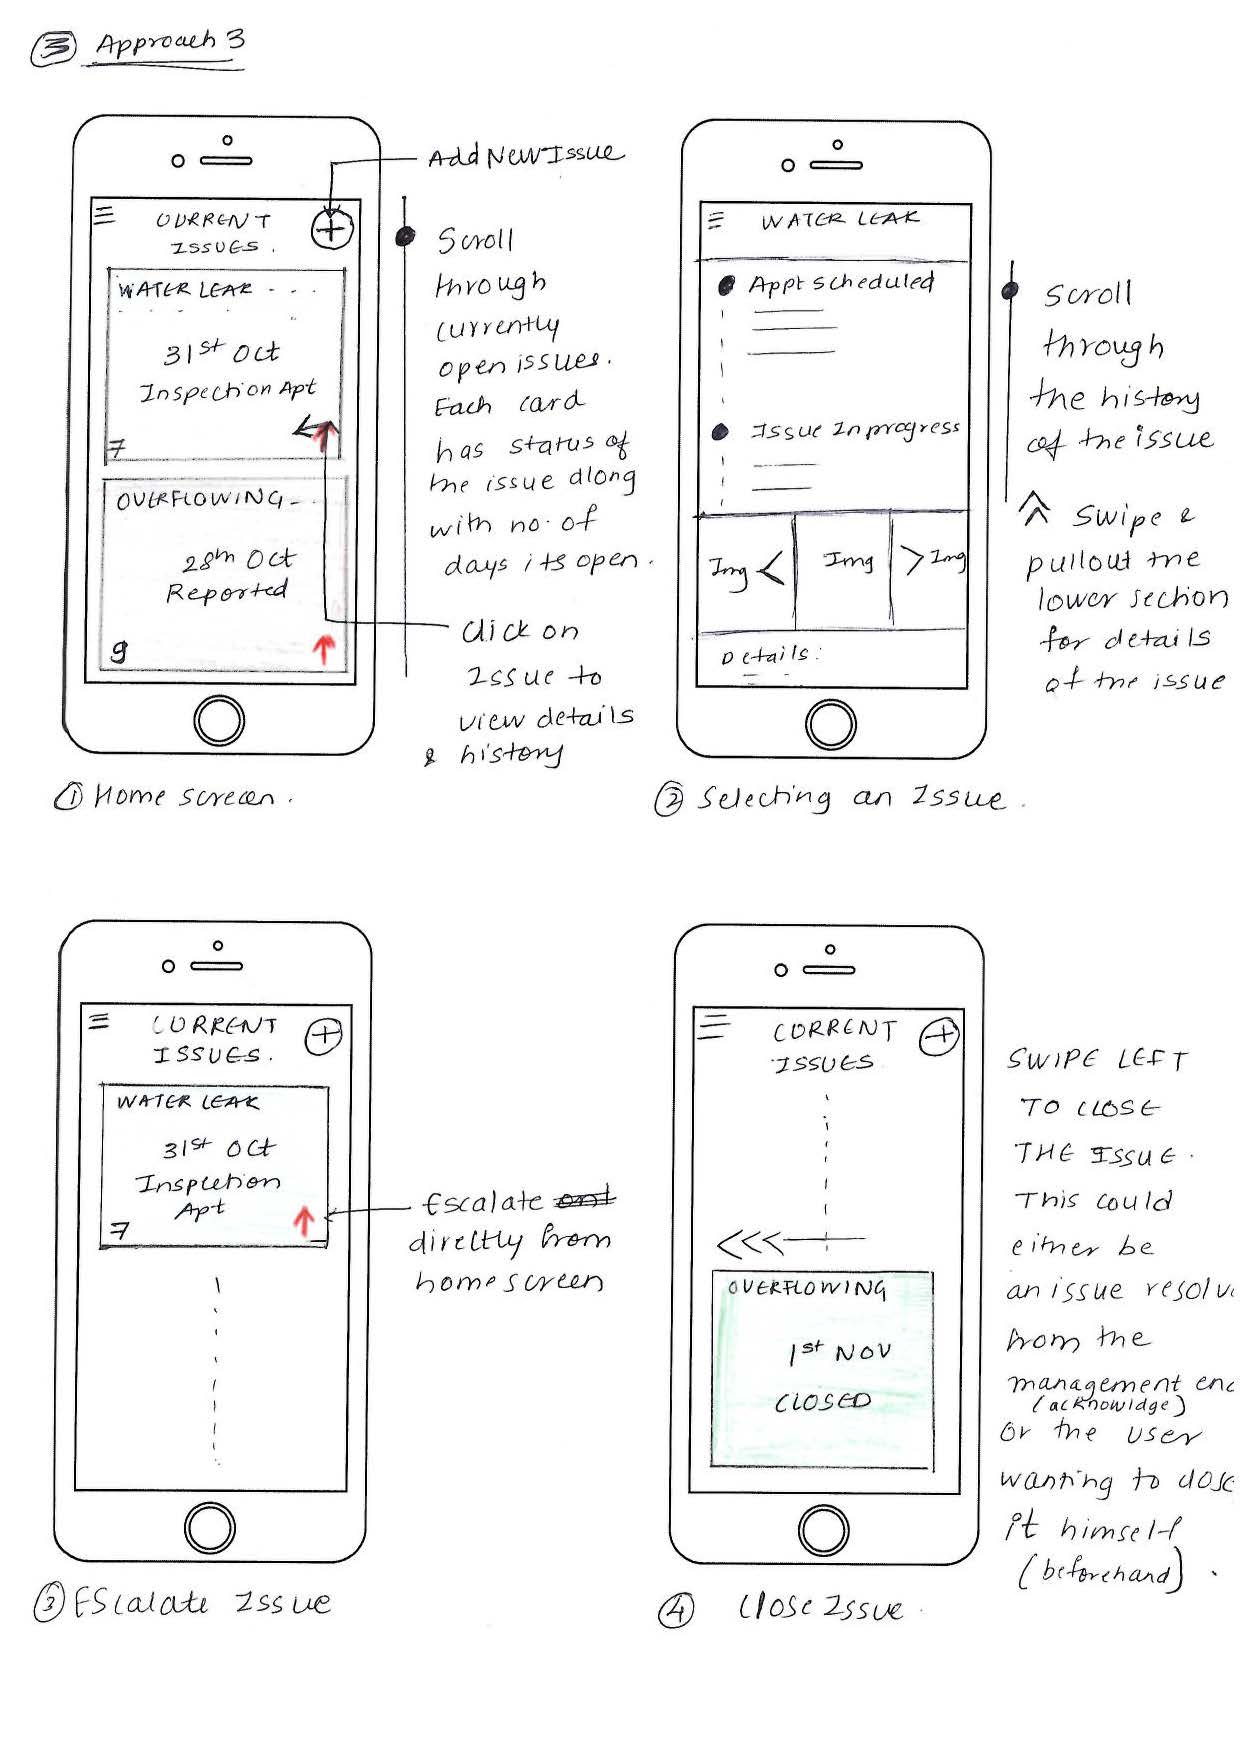 3 Approach 3
Add New Issue
CURRENT
ISSUES.
WATER LEAK - - - -
31st Oct
Inspection Apt
7
OVERFLOWING - - -
28th Oct
Reported
9
Scroll
through
currently
open issues.
Each card
has status of
the issue along
with no. of
days its open.
Click on
Issue to
view details
& history
① Home screen.
WATER LEAK
Appt scheduled
Issue In progress
Img < Img > Img
Details:
Scroll
through
the history
of the issue
Swipe &
pullout the
lower section
for details
of the issue
② Selecting an Issue.
CURRENT
ISSUES.
WATER LEAK
31st Oct
Inspection
Apt
7
Escalate
directly from
home screen
③ Escalate Issue
CURRENT
ISSUES
OVERFLOWING
1st NOV
CLOSED
SWIPE LEFT
TO CLOSE
THE ISSUE.
This could
either be
an issue resolv
from the
management end
(acknowldge)
or the user
wanting to close
it himself
(beforehand).
④ Close Issue.